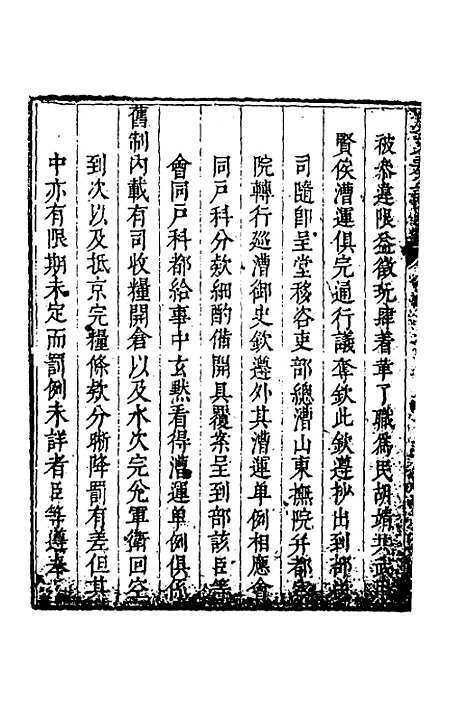 被參違限益徵玩肆着革了職爲民胡靖共政
賢俟漕運俱完通行議奪欽此欽遵抄出到部
司隨卽呈堂移咨吏部總漕山東撫院幷都
院轉行巡漕御史欽遵外其漕運单例相應會
同戸科分欵細酌備開具覆案呈到部該臣等
會同戸科都給事中玄默看得漕運单例俱係
舊制內載有司收糧開倉以及水次完兌軍衛回空
到次以及抵京完糧條欵分晰降罰有差但其
中亦有限期未定而罰例未詳者臣等遵奉